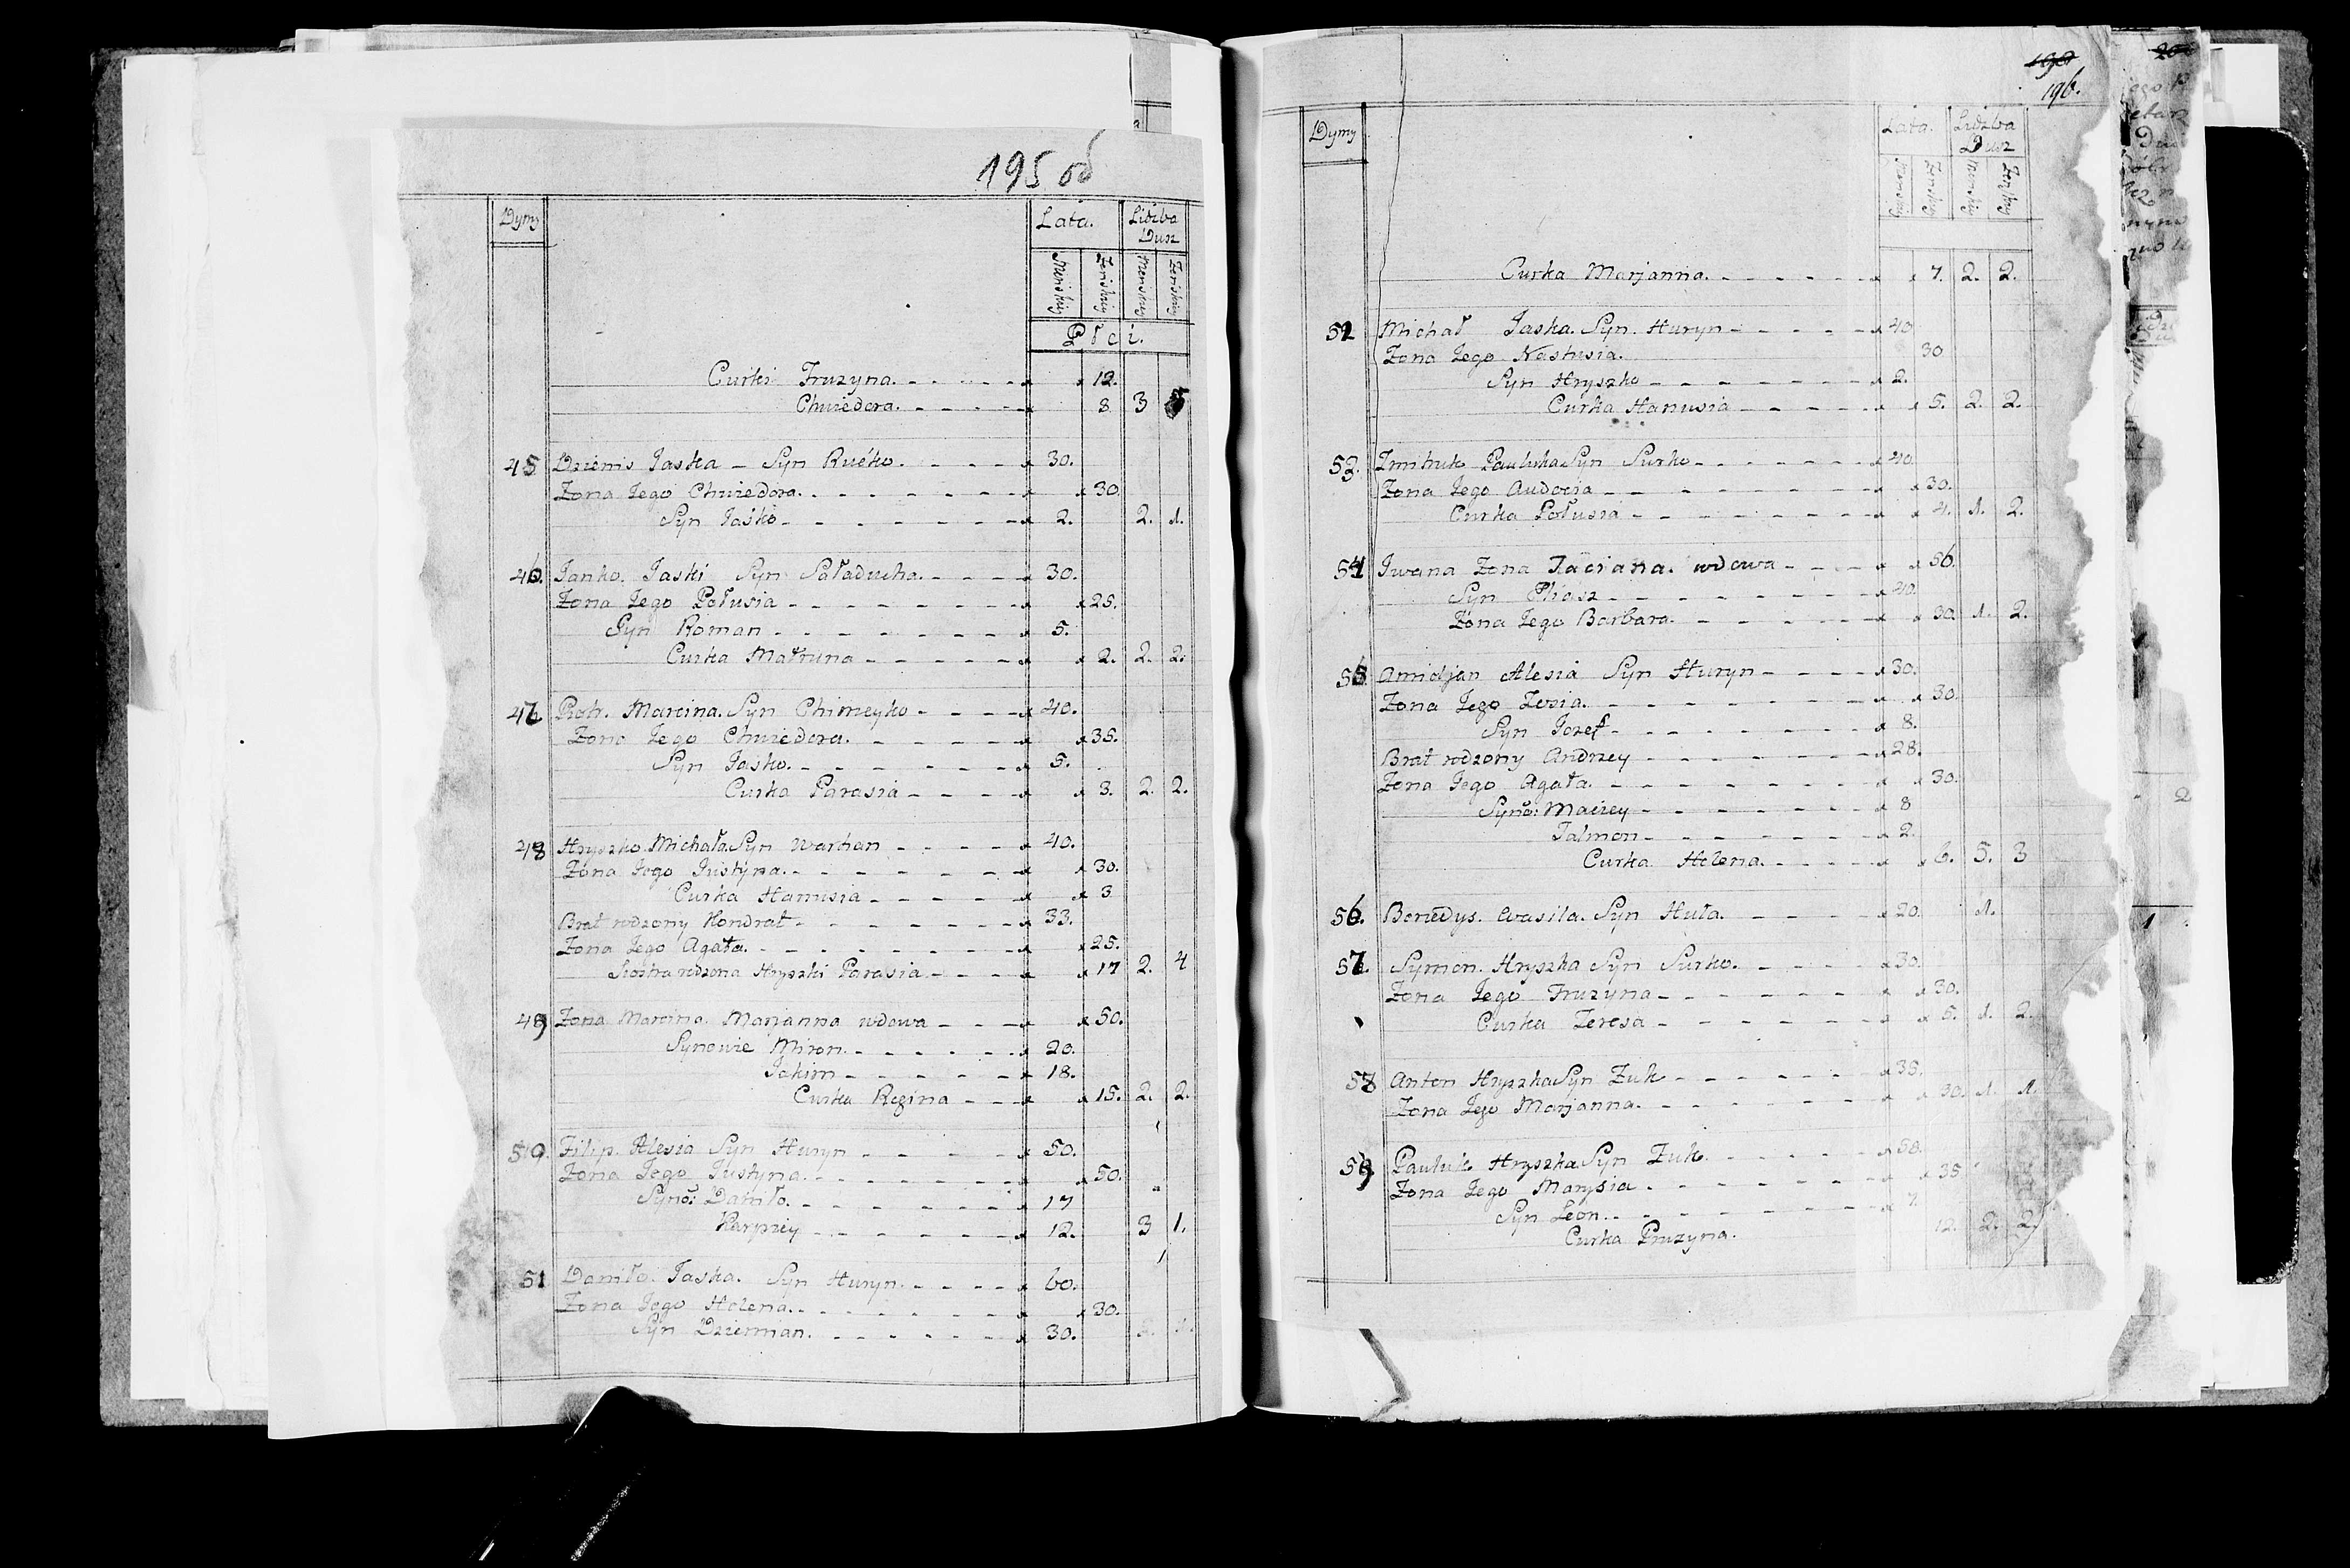 195 об
Dymy
Lata.
Liczba Dusz
Męskiey
Żeńskiey
Męskiey
Żeńskiey
Płci.
Curki Fruzyna. 12.
Chwiedora. 8 3 5
45 Dzienis Jaśka - Syn Rućko. 30.
Żona Jego Chwiedora. 30.
Syn Jaśko - 2. 2. 1.
46. Janko. Jaśki Syn Saładucha. 30.
Żona Jego Połusia - 25.
Syn Roman - 5.
Curka Matruna - 2. 2. 2.
47 Piotr. Marcina. Syn Chimeyko - 40.
Żona Jego Chwiedora. 35.
Syn Jaśko. 5.
Curka Parasia - 3. 2. 2.
48 Hryszko Michała Syn Warhan - 40.
Żona Jego Justyna. 30.
Curka Hanusia - 3
Brat rodzony Kondrat - 33.
Żona Jego Agata. 25.
Siostra rodzona Hryszki Parasia - 17 2. 4
49 Żona Marcina Marjanna wdowa - 50.
Synowie Miron. 20.
Jakim - 18.
Curka Regina - 15. 2. 2.
50. Filip. Alesia Syn Huryn - 50.
Żona Jego Justyna. 50.
Synō: Daniło. 17
Karpiey - 12. 3 1.
51 Daniło. Jaśka. Syn Huryn. 60.
Żona Jego Helena. 30.
Syn Dziemian. 30.
196.
Dymy
Lata.
Liczba Dusz
Męskiey
Żeńskiey
Męskiey
Żeńskiey
Curka Marjanna. 7. 2. 2.
52 Michał Jaśka. Syn. Huryn - 40
Żona Jego Nastusia. 30.
Syn Hryszko - 2.
Curka Hanusia - 5. 2. 2.
53. Zmitruk Pauluka Syn Surko - 40.
Żona Jego Audocia - 30.
Curka Połusia - 4. 1. 2.
54 Iwana Żona Taciana. wdowa - 56.
Syn Eliasz - 40.
Żona Jego Barbara. 30. 1. 2.
55. Amidjan Alesia Syn Huryn - 30.
Żona Jego Zosia. 30.
Syn Jozef - 8.
Brat rodzony Andrzey - 28.
Żona Jego Agata. 30.
Synō: Maciey - 8
Talmon - 2.
Curka Helena. 6. 5. 3
56. Benedys. Wasila. Syn Huła. 20. 1.
57. Symon. Hryszka Syn Surko. 30.
Żona Jego Fruzyna - 30.
Curka Teresa - 5. 1. 2.
58 Anton Hryszka Syn Żuk - 35.
Żona Jego Marjanna. 30. 1. 1.
59 Pauluk Hryszka Syn Żuk 50.
Żona Jego Marysia - 35
Syn Leon. 7.
Curka Pruzyna. 12. 2. 2.